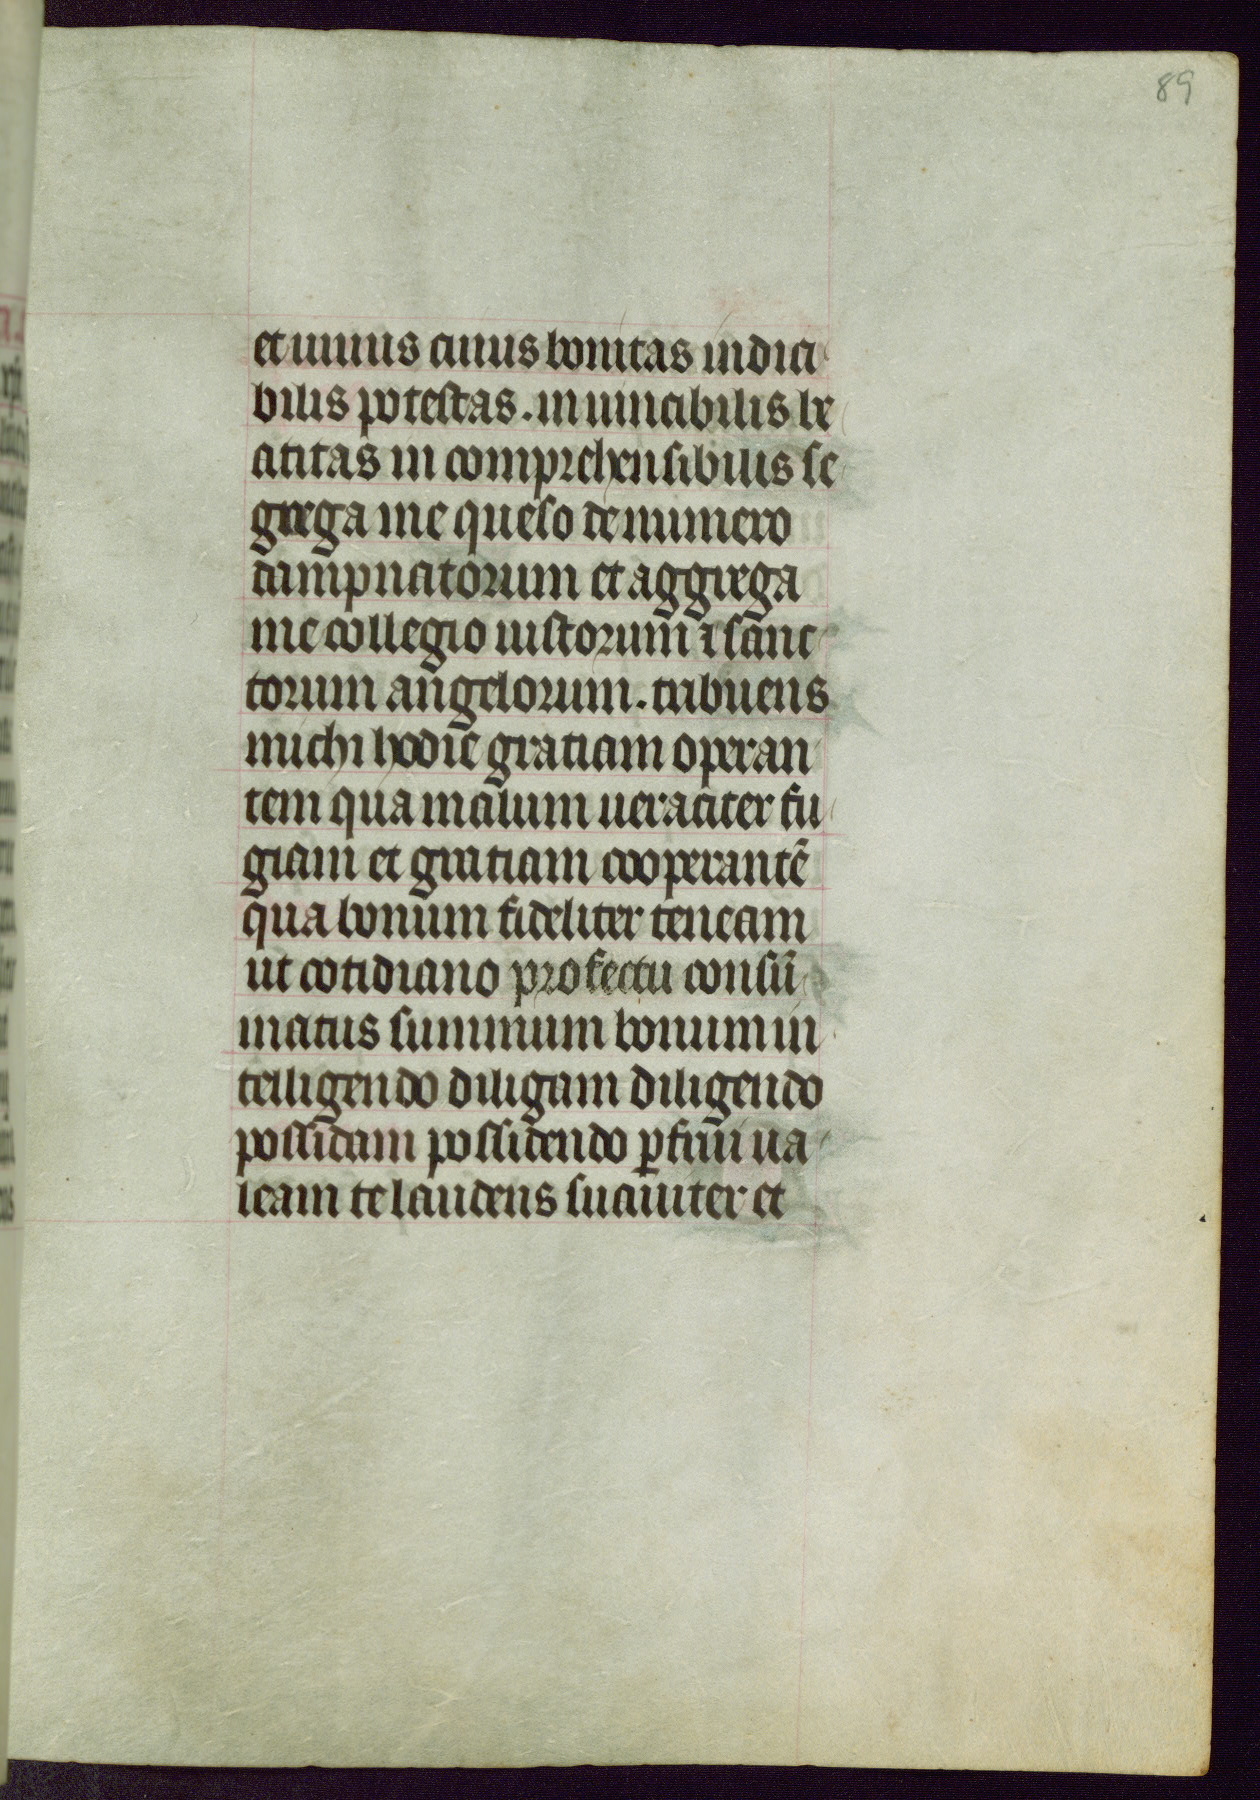 89
et unius cuius bonitas indici
bilis potestas. in uincibilis be
atitas in comprehensibilis se
grega me queso de numero
dampnatorum et aggrega
me collegio iustorum ⁊ sanc
torum angelorum. tribuens
michi hodie gratiam operan
tem qua malum ueraciter fu
giam et gratiam cooperantē
qua bonum fideliter teneam
ut cotidiano profectu consū
matus summum bonum in
telligendo diligam diligendo
possidam possidendo ꝑfrui ua
leam te laudens suauiter et